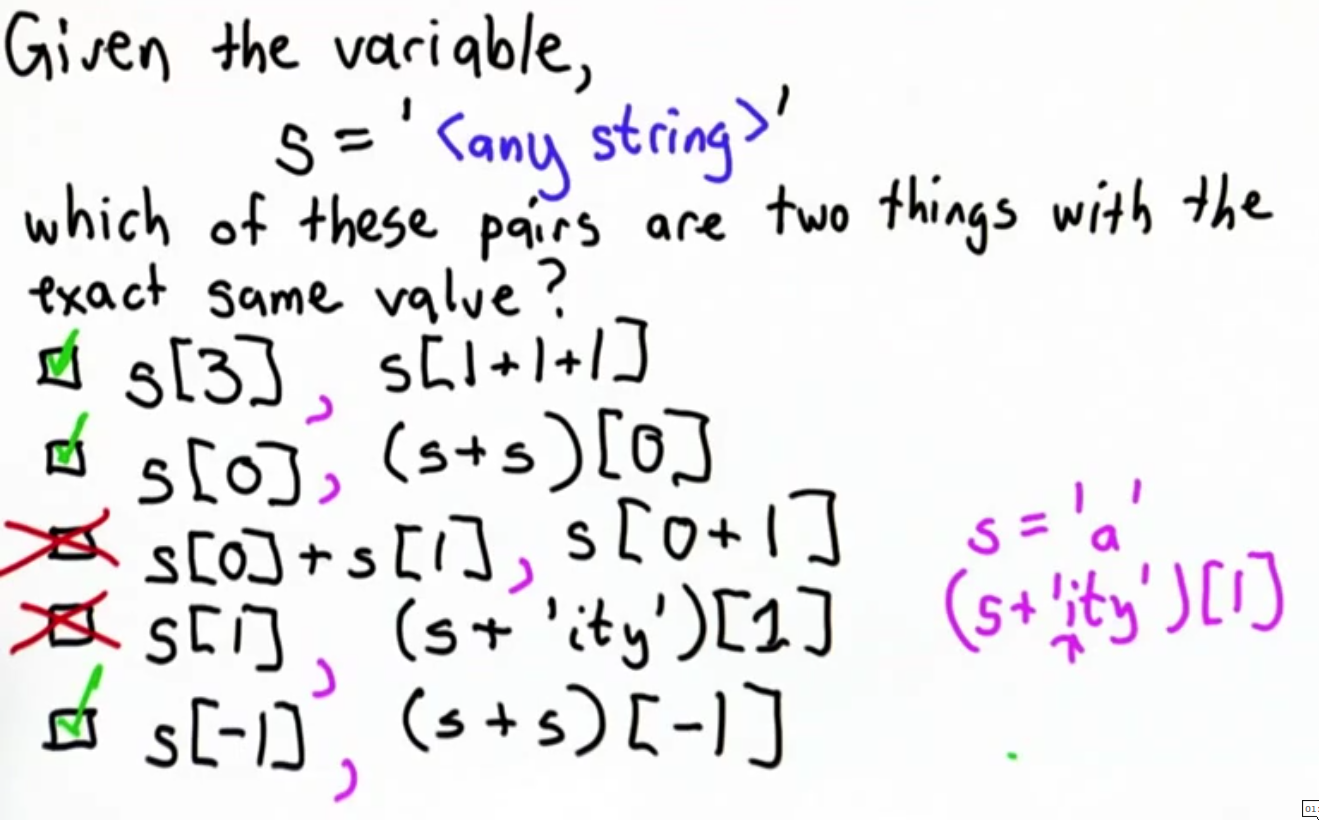 Given the variable,
s = '<any string>'
which of these pairs are two things with the
exact same value?
s[3], s[1+1+1]
s[0], (s+s)[0]
s[0]+s[1], s[0+1]
s[1], (s+'ity')[1]
s[-1], (s+s)[-1]
s = 'a'
(s+'ity')[1]